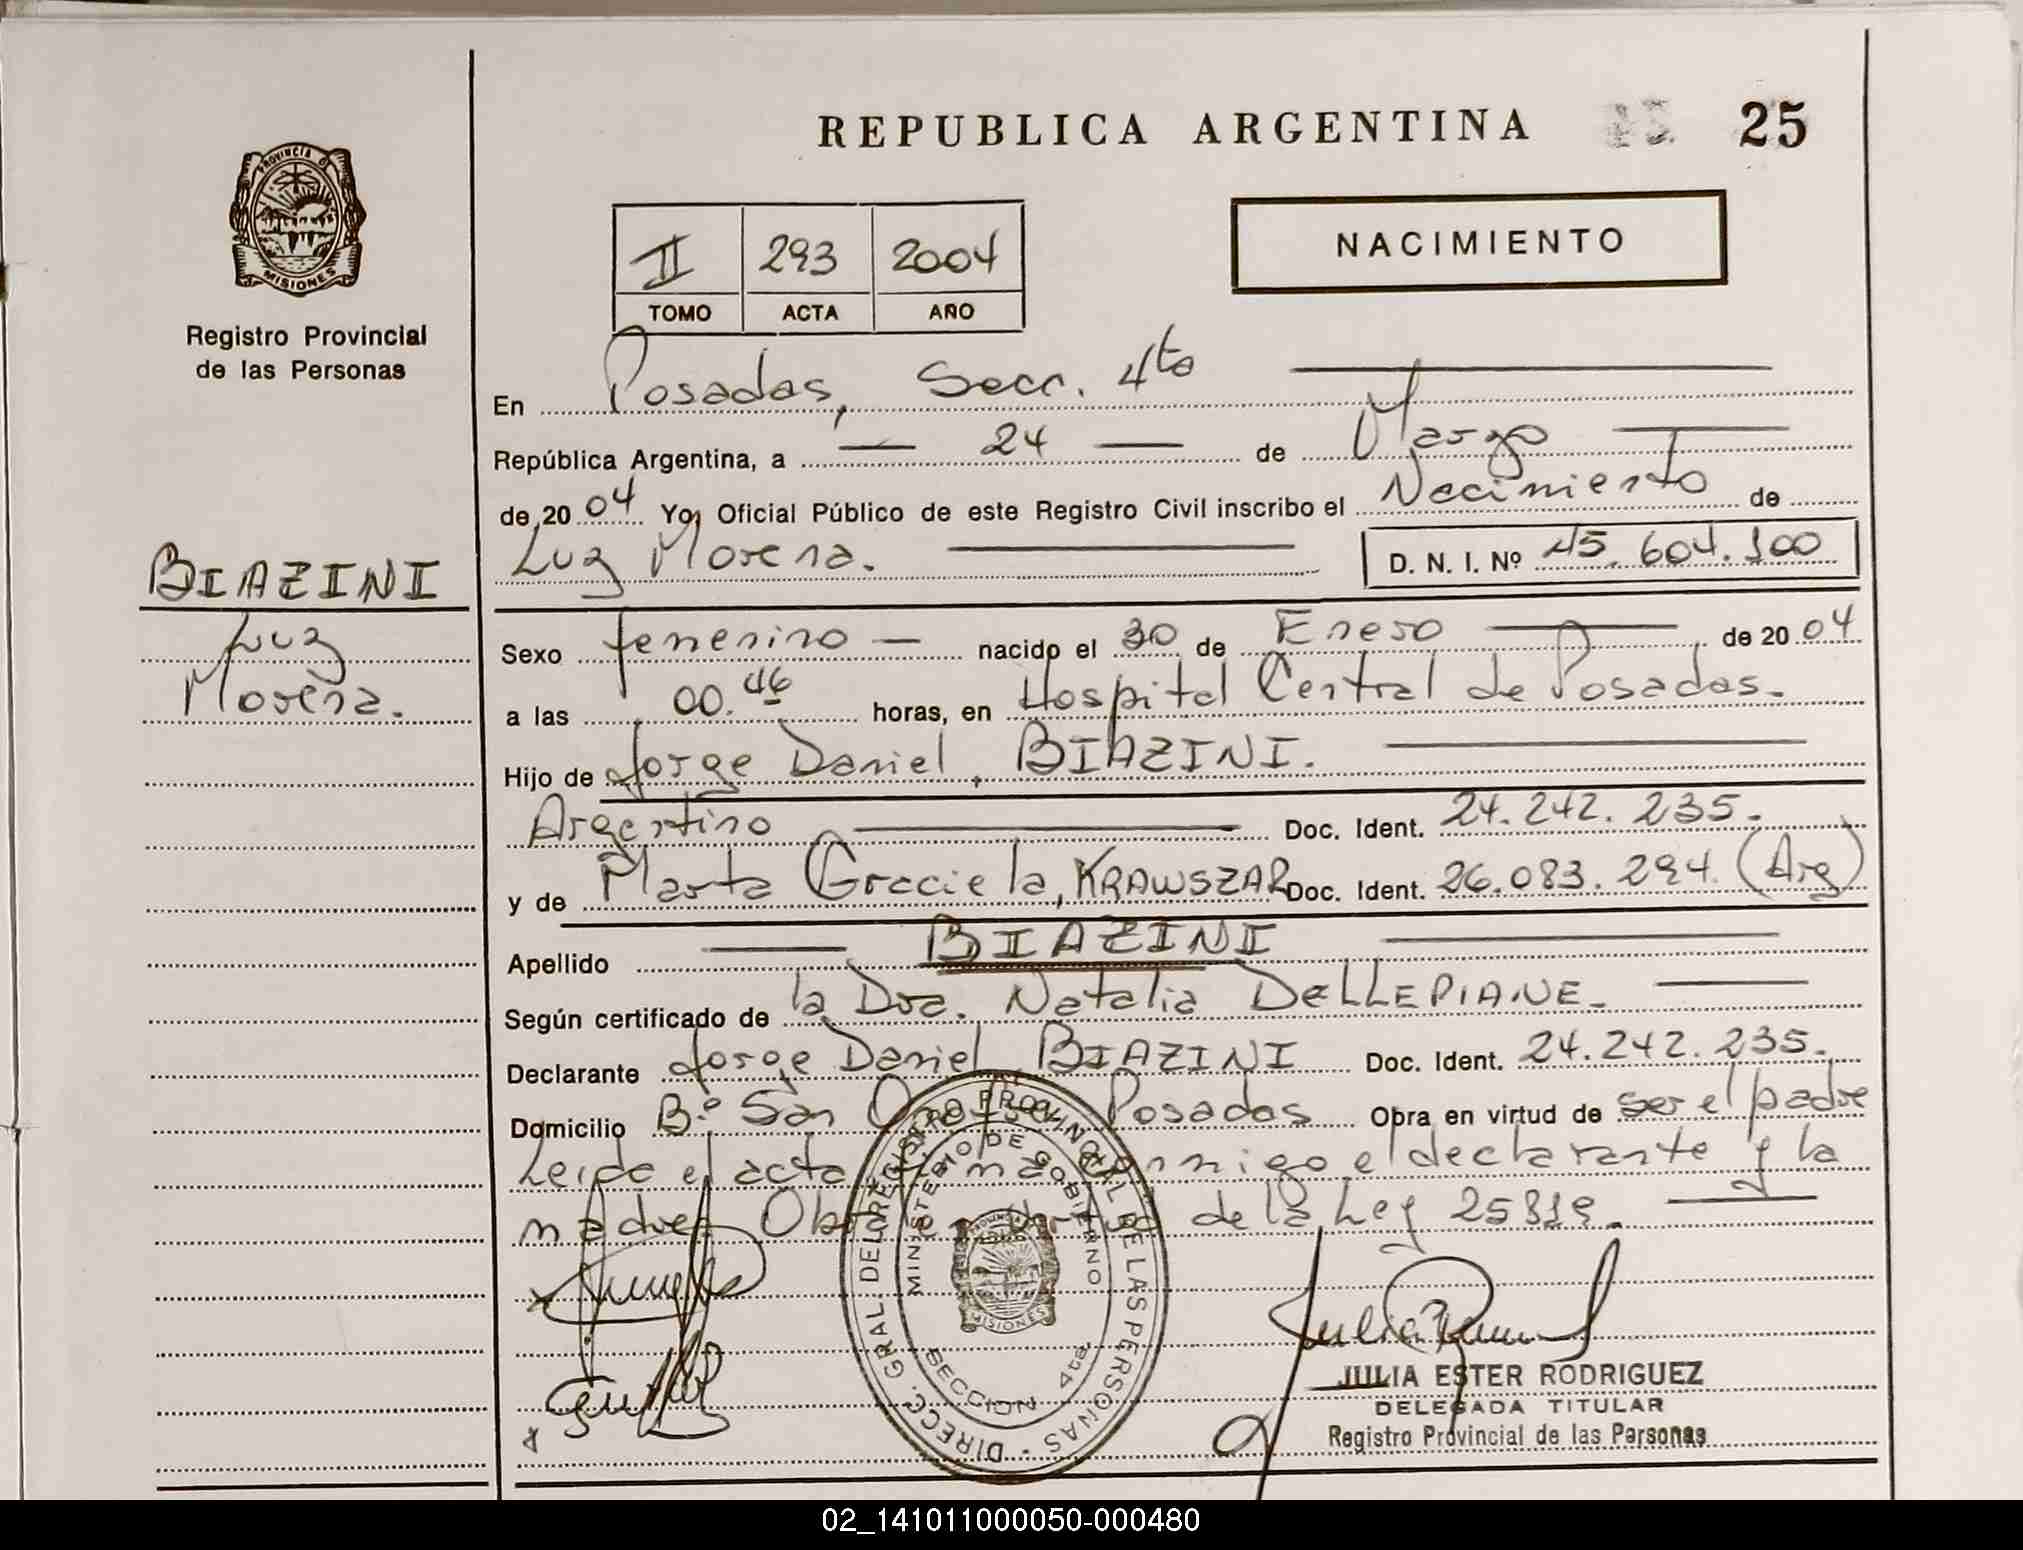 REPUBLICA ARGENTINA 25
PROVINCIA D
MISIONES
Registro Provincial
de las Personas
II 293 2004
TOMO ACTA AÑO
NACIMIENTO
En Posadas, Secc. 4ta
República Argentina, a 24 de Marzo
de 2004 Yo, Oficial Público de este Registro Civil inscribo el Nacimiento de
Luz Morena. D. N. I. Nº 45.604.100
BIAZINI
Luz
Morena.
Sexo femenino nacido el 30 de Enero de 2004
a las 00.46 horas, en Hospital Central de Posadas.
Hijo de Jorge Daniel, BIAZINI.
Argentino Doc. Ident. 24.242.235.
y de Marta Graciela, KRAWSZAR Doc. Ident. 26.083.294. (Arg)
Apellido BIAZINI
Según certificado de la Dra. Natalia DELLEPIANE.
Declarante Jorge Daniel BIAZINI Doc. Ident. 24.242.235.
Domicilio Bº San Posadas Obra en virtud de ser el padre
Leida el acta conmigo el declarante y la
madre. de la Ley 25819.
DIRECC. GRAL. DEL REGISTRO PROVINCIAL DE LAS PERSONAS
MINISTERIO DE GOBIERNO
MISIONES
SECCION 4ta
JULIA ESTER RODRIGUEZ
DELEGADA TITULAR
Registro Provincial de las Personas
02_141011000050-000480